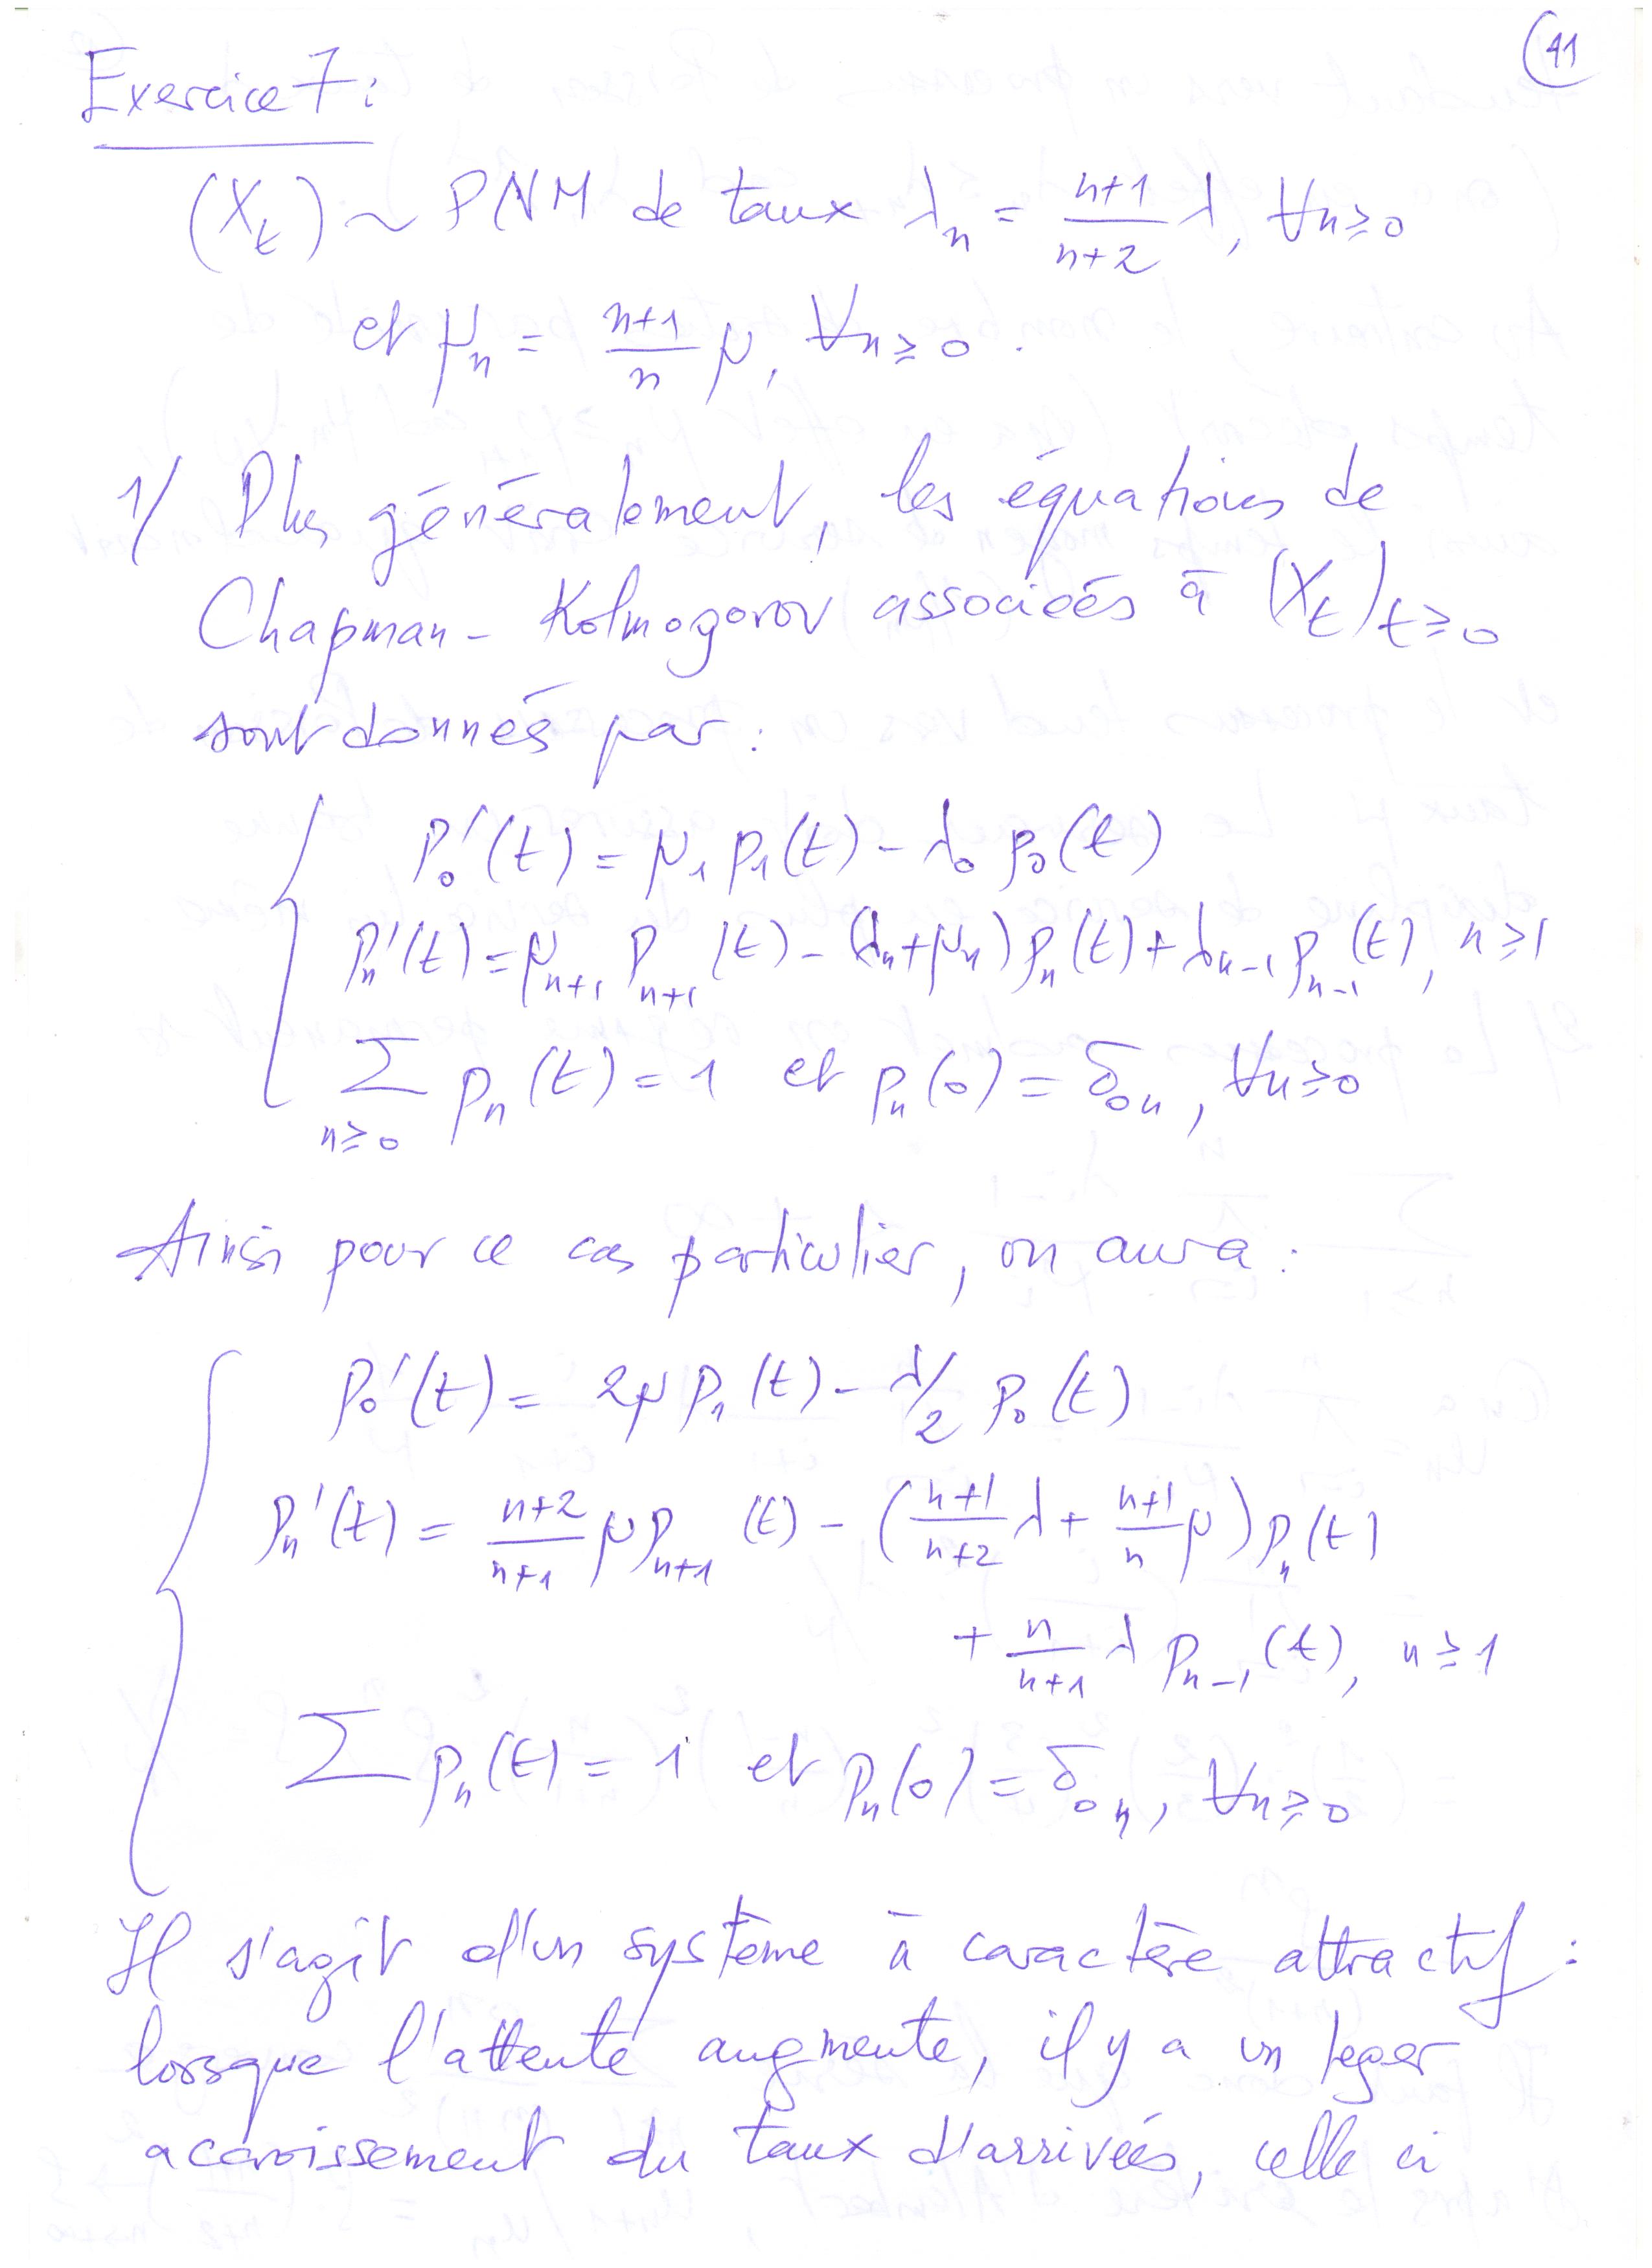 41
Exercice 7 :
(X_t) ~ PNM de taux λ_n = (n+1)/(n+2) λ, ∀n≥0
et μ_n = (n+1)/n μ, ∀n≥0.
1/ Plus généralement, les équations de
Chapman-Kolmogorov associées à (X_t)_{t≥0}
sont données par :
p_0'(t) = μ_1 p_1(t) - λ_0 p_0(t)
p_n'(t) = μ_{n+1} p_{n+1}(t) - (λ_n + μ_n) p_n(t) + λ_{n-1} p_{n-1}(t), n≥1
∑_{n≥0} p_n(t) = 1 et p_n(0) = δ_{0n}, ∀n≥0
Ainsi pour ce cas particulier, on aura :
p_0'(t) = 2μ p_1(t) - λ/2 p_0(t)
p_n'(t) = (n+2)/(n+1) μ p_{n+1}(t) - ((n+1)/(n+2) λ + (n+1)/n μ) p_n(t)
+ n/(n+1) λ p_{n-1}(t), n≥1
∑ p_n(t) = 1 et p_n(0) = δ_{0n}, ∀n≥0
Il s'agit d'un système à caractère attractif :
lorsque l'attente augmente, il y a un leger
accroissement du taux d'arrivées, celle ci